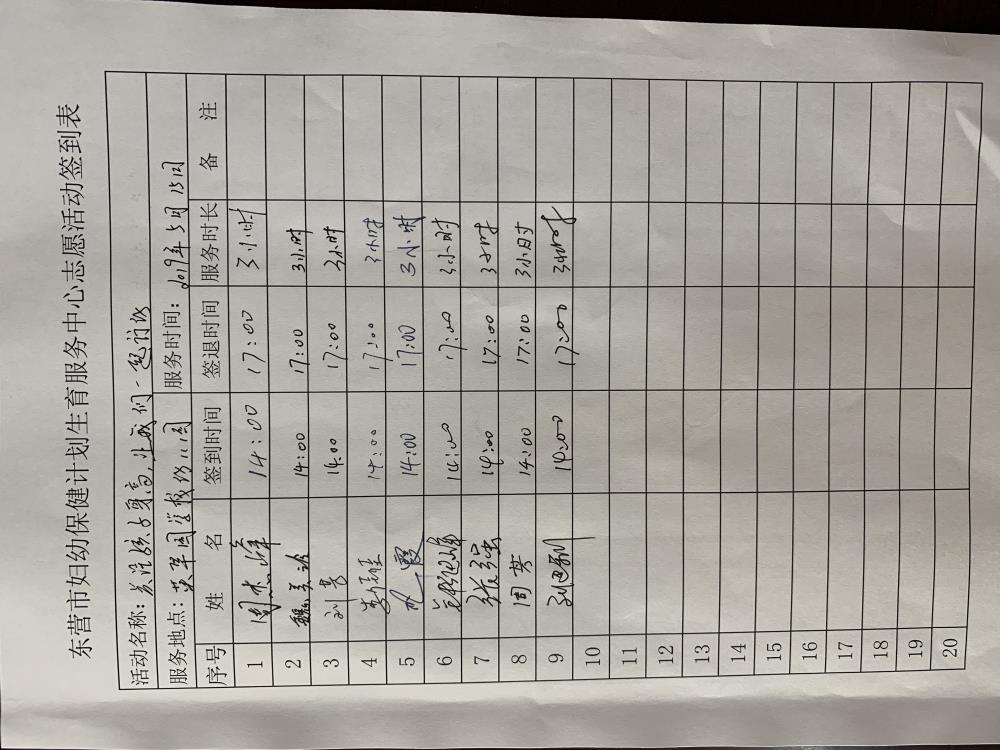 东营市妇幼保健计划生育服务中心志愿活动签到表
活动名称：关注孩子身高，让我们一起
服务地点： 服务时间：2019年5月15日
序号 姓 名 签到时间 签退时间 服务时长 备 注
1 周 14：00 17：00 3小时
2 魏美 14：00 17：00 3小时
3 刘芳 14：00 17：00 3小时
4 14：00 17：00 3小时
5 霞 14：00 17：00 3小时
6 14：00 17：00 3小时
7 张强 14：00 17：00 3小时
8 周芳 14：00 17：00 3小时
9 刘 14：00 17：00 3小时
10
11
12
13
14
15
16
17
18
19
20